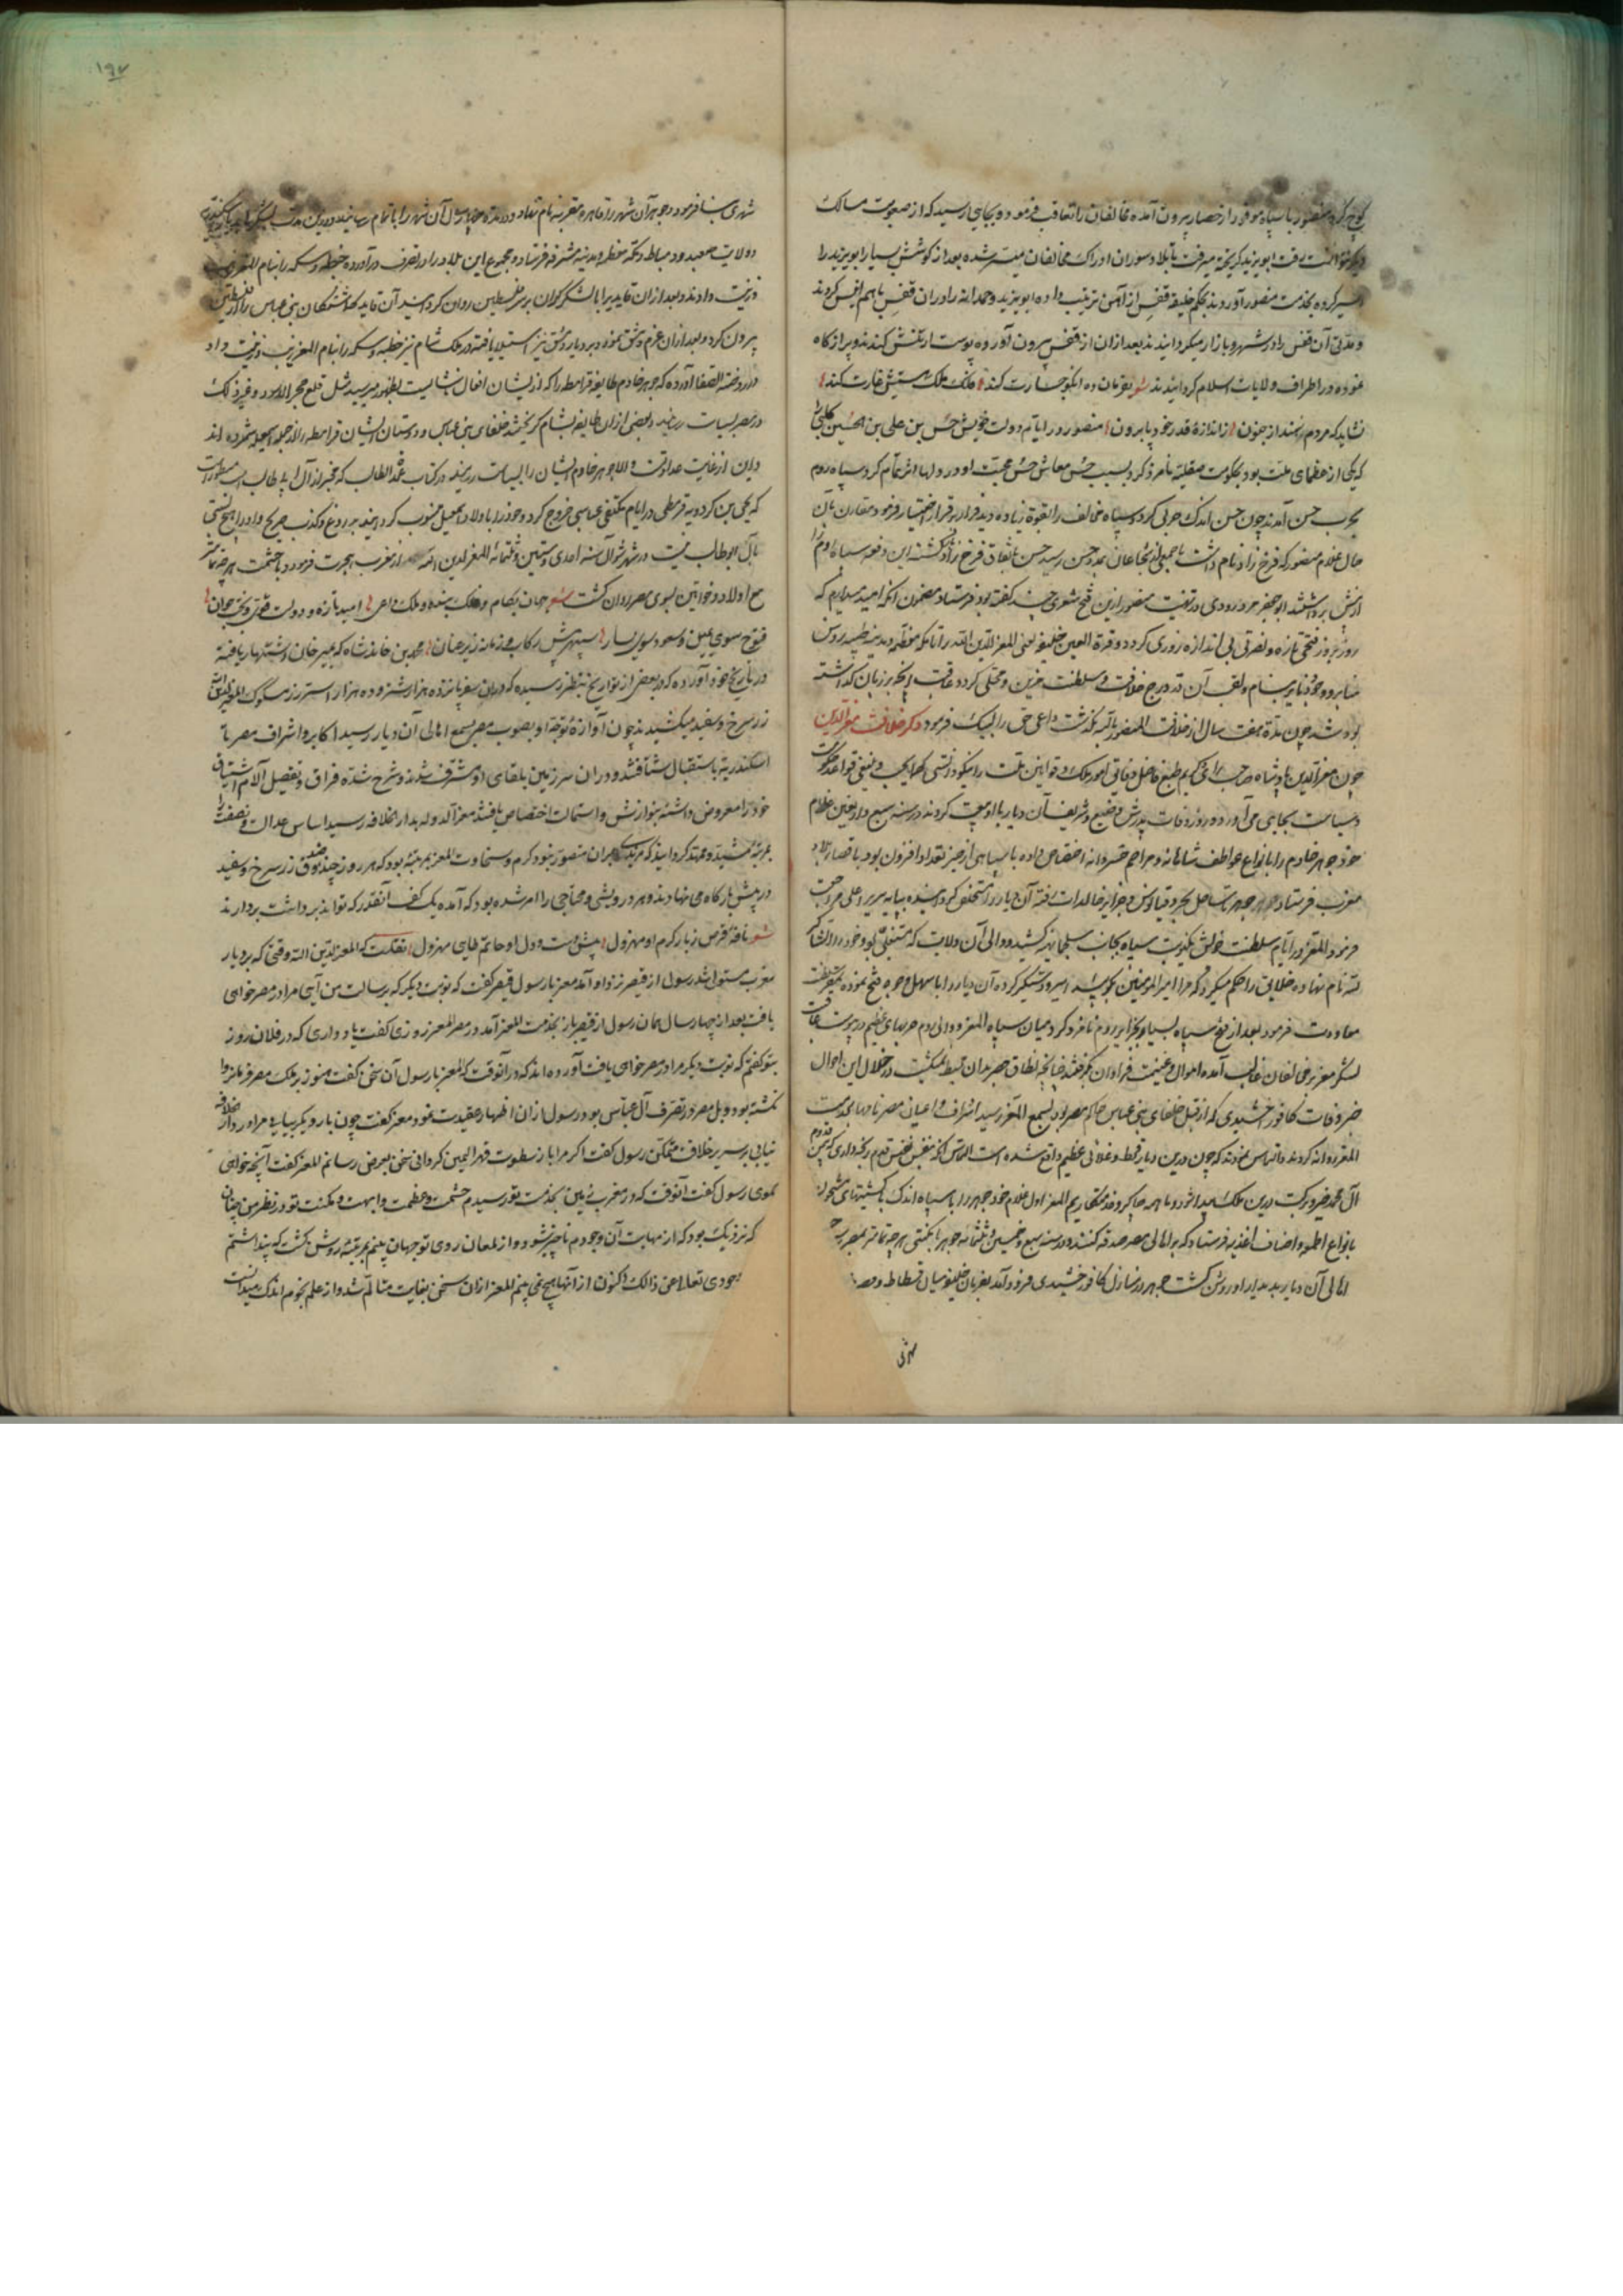 کوچ کرده منصور با سپاه موفور از حصار بیرون آمده مخالفان را تعاقب فرمود و بجایی رسید که از صعوبت مسالک
ابویزید گریخته میرفت بعد از کوشش بسیار ابویزید را
اسیر کرده بخدمت منصور آوردند بحکم خلیفه قفس از آهن ترتیب داده ابویزید را در ان قفس با هم کردند
و مدتی آن قفس را در شهر و بازار میکردانیدند بعد از ان از قفس بیرون آورده پوست از تنش کندند و پر از کاه
نموده در اطراف ولایات اسلام کردانیدند
نشاید که مردم از اندازهٔ قدر خود پا برون منصور در ایام دولت خویش حسن بن علی بن الحسین کلبی را
که یکی از عظمای ملت بود بحکومت صقلیه نامزد کرد بسبب حسن معاش حسن محبت او در دلها اثر تمام کرد سپاه روم
بحرب حسن آمدند چون حسن اندک حربی کرد و سپاه مخالف را بقوة زیاده دید فرار بر قرار اختیار فرمود مقارن بآن
حال غلام منصور که فرخ زاد نام داشت با جمعی از شجاعان بمدد حسن رسید حسن باتفاق فرخ زاد این دفعه سپاه روم را
از پیش برداشتند ابوجعفر مرورودی در تهنیت منصور ازین فتح شعری چند کفته بود فرستاد مضمون آنکه امید میدارم که
روز بروز فتحی تازه و نصرتی بی اندازه روزی کردد و قرة العین خلیفه یعنی المعز لدین الله را تا مکه معظمه و مدینه طیبه رؤس
منابر و وجوه دنانیر بنام و لقب آن در درج خلافت و سلطنت مزین و محلی کردد عاقبت آنچه بر زبان کذاشته
بود شد چون مدة هفت سال از خلافت المنصور بالله بکذشت داعی حق را لبیک فرمود ذکر خلافت معز لدین
چون معز لدین پادشاه صاحب رای کریم طبع فاضل دقایق امور ملک و قوانین ملت را نیکو دانستی کما یجب و ینبغی قواعد حکومت
و سیاست بجای می آورد در روز وفات پدرش وضیع و شریف آن دیار با او بیعت کردند در سنه سبع و اربعین غلام
خود جوهر خادم را بانواع عواطف شاهانه و مراحم خسروانه اختصاص داده با سپاهی از حیز تعداد افزون بود باقصای بلاد
مغرب فرستاد جوهر تا ساحل بحر اوقیانوس و جزایر خالدات رفته آن دیار را مستخلص کردانیده بپایه سریر اعلی مراجعت
فرمود المعز در ایام سلطنت خویش یکنوبت سپاه بجانب سلجماسه کشید و والی آن ولایت که متغلبی بود و خود را الشاکر
لله نام نهاده خلایق را حکم میکرد که مرا امیرالمومنین کویید اسیر و دستکیر کرده آن دیار را با سهل وجوه فتح نموده بمقر سلطنت
معاودت فرمود بعد از فتح سپاه بسیار بجزایر روم نامزد کرد میان سپاه المعز و والی روم حربهای عظیم در پیوست عاقبت
لشکر معز بر مخالفان غالب آمده اموال و غنیمت فراوان بکرفتند چنانچه نطاق حصر بدان محیط نمیکشت در خلال این احوال
خبر وفات کافور اخشیدی که از قبل خلفای بنی عباس حاکم مصر بود بسمع المعز رسید اشراف و اعیان مصر نامها بخدمت
المعز روانه کردند و التماس نمودند که چون درین دیار قحط و غلائی عظیم واقع شده است التماس آنکه بنفس نفیس قدم رنجه داری که بیمن قدوم
آل محمد خیر و برکت درین ملک پیدا شود و ما همه چاکر و خدمتکاریم المعز اول غلام خود جوهر را با سپاه اندک با کشتیهای مشحون
بانواع اطعمه و اصناف اغذیه فرستاد که بر اهالی مصر صدقه کنند و در سنه سبع و خمسین و ثلثمائه جوهر با مکنتی هر چه تمامتر بمصر رسید
اهالی آن دیار بدیدار او روشن کشت جوهر در منازل کافور اخشیدی فرود آمد بفرمان خلیفه میان فسطاط و مصر
شهری
۱۹۷
شهری بنا فرمود و جوهر آن شهر را قاهره معزیه نام نهاد و در مدة چهار سال آن شهر را باتمام رسانید و درین مدت لشکرها
و ولایت صعید و دمیاط و مکه معظمه و مدینه مشرفه فرستاد و مجموع این بلاد را در تصرف درآورده خطبه و سکه را بنام المعز
و زینت دادند و بعد از ان قایدی را با لشکر کران بر فلسطین روان کردانید آن قاید کماشتکان بنی عباس را از فلسطین
بیرون کرد و بعد از ان عزم دمشق نمود و بر دیار دمشق نیز استیلا یافته در ملک شام نیز خطبه و سکه را بنام المعز زیب و زینت داد
در روضة الصفا آورده که جوهر خادم طایفه قرامطه را که از ایشان افعال ناشایست بظهور میرسید مثل قلع حجر الاسود و غیر ذلک
در مصر بسیاست رسانید و بعضی ازان طایفه بشام کریختند خلفای بنی عباس و دوستان ایشان قرامطه را از جمله اسمعیلیه شمرده اند
و این از غایت عداوتست و الا جوهر خادم ایشان را بسیاست نرسانیدی در کتاب عمدة الطالب که مخبر از آل ابی طالب است مسطور است
که یحیی بن کردویه قرمطی در ایام مکتفی عباسی خروج کرد و خود را باولاد اسمعیل منسوب کردانید بدروغ و کذب صریح و او را هیچ نسبتی
بآل ابوطالب نیست در شهر شوال سنه احدی و ستین و ثلثمائه المعز لدین الله از مغرب هجرت فرمود و با حشمت هر چه تمامتر
مع اولاد و خواتین بسوی مصر روان کشت شعر جهان بکام و فلک بنده و ملک داعی امید تازه و دولت قوی و بخت جوان
فتوح سوی یمین و سعود سوی یسار سپهر پیش رکاب و زمانه زیر عنان محمد بن خاوندشاه که بمیر خان اشتهار یافته
در تاریخ خود آورده که در بعضی از تواریخ بنظر رسیده که در ان سفر پانزده هزار شتر و ده هزار استر زر مسکوک
زر سرخ و سفید میکشیدند چون آوازهٔ توجه او بصوب مصر بسمع اهالی آن دیار رسید اکابر و اشراف مصر تا
اسکندریه باستقبال شتافتند و دران سرزمین بلقای او مشرف شدند و شرح شدة فراق و تفصیل آلام اشتیاق
خود را معروض داشته بنوازش و استمالت اختصاص یافتند معز الدوله بدار الخلافه رسید اساس عدالت و نصفت را
بمرتبهٔ مشید و ممهد کردانید که مزیدی بران متصور نبود کرم و سخاوت المعز بمرتبهٔ بود که هر روز چند صندوق زر سرخ و سفید
در پیش بارکاه می نهادند و هر درویشی و محتاجی را امر شده بود که آمده یک کف آنقدر که تواند برداشت بردارند
شعر نافهٔ قرص زیار کرم او مهزول پیش دست و دل او حاتم طایی مهزول نقلست که المعز لدین الله وقتی که بر دیار
مغرب مستولی شد رسول از قیصر نزد او آمد معز با رسول قیصر کفت که نوبت دیکر که برسالت من آیی مرا در مصر خواهی
یافت بعد از چهار سال همان رسول از قیصر باز بخدمت المعز آمد در مصر المعز روزی کفت یاد داری که در فلان روز
بتو کفتم که نوبت دیکر مرا در مصر خواهی یافت آورده اند که در آنوقت که المعز با رسول آن سخن کفت هنوز بر ملک مصر فرمانروا
نکشته بود و بل مصر در تصرف آل عباس بود رسول ازان اظهار عقیدت نمود معز کفت چون بار دیکر بیایی مرا در دار خلافه
نیابی بر سریر خلافت متمکن رسول کفت اکر مرا باز سطوت قهر ایمن کردانی سخنی بعرض رسانم المعز کفت آنچه خواهی
کوی رسول کفت آنوقت که در مغرب بخدمت تو رسیدم حشمت و عظمت و ابهت و مکنت تو در نظر من چنان
که نزدیک بود که از مهابت آن وجودم ناچیز شود و از لمعان روی تو جهان بینم بمرتبهٔ روشن کشت که پنداشتم
وجودی تعالی عن ذالک و اکنون از آنها هیچ نمی بینم المعز ازان سخن بغایت متالم شد و از علم نجوم اندک میدانست